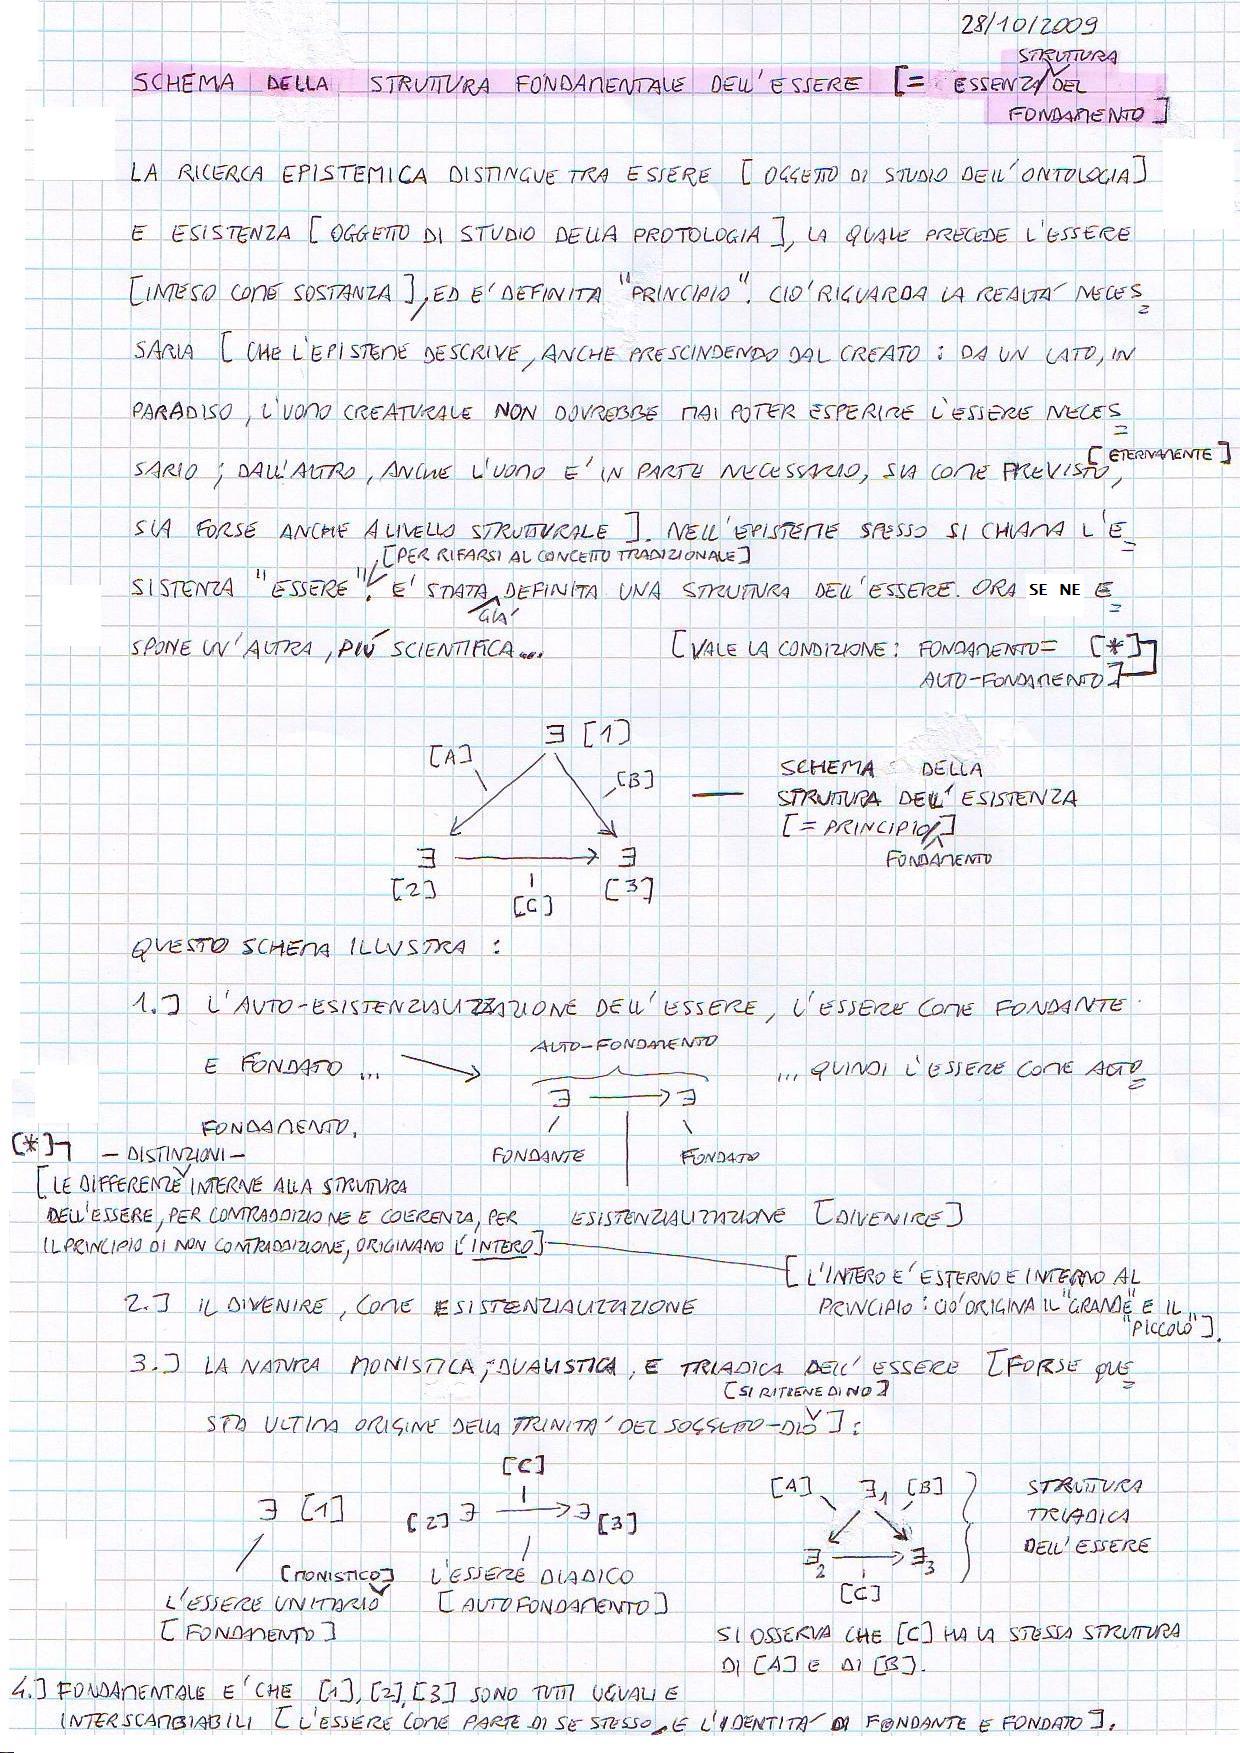 28/10/2009
STRUTTURA
SCHEMA DELLA STRUTTURA FONDAMENTALE DELL'ESSERE [= ESSENZA DEL
FONDAMENTO]
LA RICERCA EPISTEMICA DISTINGUE TRA ESSERE [OGGETTO DI STUDIO DELL'ONTOLOGIA]
E ESISTENZA [OGGETTO DI STUDIO DELLA PROTOLOGIA], LA QUALE PRECEDE L'ESSERE
[INTESO COME SOSTANZA], ED E' DEFINITA "PRINCIPIO". CIO' RIGUARDA LA REALTA' NECES=
SARIA [CHE L'EPISTEME DESCRIVE, ANCHE PRESCINDENDO DAL CREATO: DA UN LATO, IN
PARADISO, L'UOMO CREATURALE NON DOVREBBE MAI POTER ESPERIRE L'ESSERE NECES=
SARIO; DALL'ALTRO, ANCHE L'UOMO E' IN PARTE NECESSARIO, SIA COME PREVISTO,
[ETERNAMENTE]
SIA FORSE ANCHE A LIVELLO STRUTTURALE]. NELL'EPISTEME SPESSO SI CHIAMA L'E=
[PER RIFARSI AL CONCETTO TRADIZIONALE]
SISTENZA "ESSERE". E' STATA DEFINITA UNA STRUTTURA DELL'ESSERE. ORA SE NE E=
GIA'
SPONE UN'ALTRA, PIÚ SCIENTIFICA... [VALE LA CONDIZIONE: FONDAMENTO= [*]
AUTO-FONDAMENTO]
∃ [1]
[A]
[B]
∃ → ∃
[2] [C] [3]
SCHEMA DELLA
STRUTTURA DELL'ESISTENZA
[= PRINCIPIO/]
FONDAMENTO
QUESTO SCHEMA ILLUSTRA:
1.] L'AUTO-ESISTENZIALIZZAZIONE DELL'ESSERE, L'ESSERE COME FONDANTE
AUTO-FONDAMENTO
E FONDATO ... ∃ → ∃ ... QUINDI L'ESSERE COME AUTO=
FONDAMENTO.
FONDANTE FONDATO
ESISTENZIALIZZAZIONE [DIVENIRE]
[*]
- DISTINZIONI -
[LE DIFFERENZE INTERNE ALLA STRUTTURA
DELL'ESSERE, PER CONTRADDIZIONE E COERENZA, PER
IL PRINCIPIO DI NON CONTRADDIZIONE, ORIGINANO L'INTERO]
[L'INTERO E' ESTERNO E INTERNO AL
PRINCIPIO: CIO' ORIGINA IL "GRANDE" E IL
"PICCOLO"].
2.] IL DIVENIRE, COME ESISTENZIALIZZAZIONE
3.] LA NATURA MONISTICA, DUALISTICA, E TRIADICA DELL'ESSERE [FORSE QUE=
[SI RITIENE DI NO]
STA ULTIMA ORIGINE DELLA TRINITA' DEL SOGGETTO-DIO]:
∃ [1]
[MONISTICO]
L'ESSERE UNITARIO
[FONDAMENTO]
[C]
[2] ∃ → ∃ [3]
L'ESSERE DIADICO
[AUTOFONDAMENTO]
[A] ∃1 [B]
∃2 → ∃3
[C]
STRUTTURA
TRIADICA
DELL'ESSERE
SI OSSERVA CHE [C] HA LA STESSA STRUTTURA
DI [A] E DI [B].
4.] FONDAMENTALE E' CHE [1], [2], [3] SONO TUTTI UGUALI E
INTERSCAMBIABILI [L'ESSERE COME PARTE DI SE STESSO, E L'IDENTITA' DI FONDANTE E FONDATO].